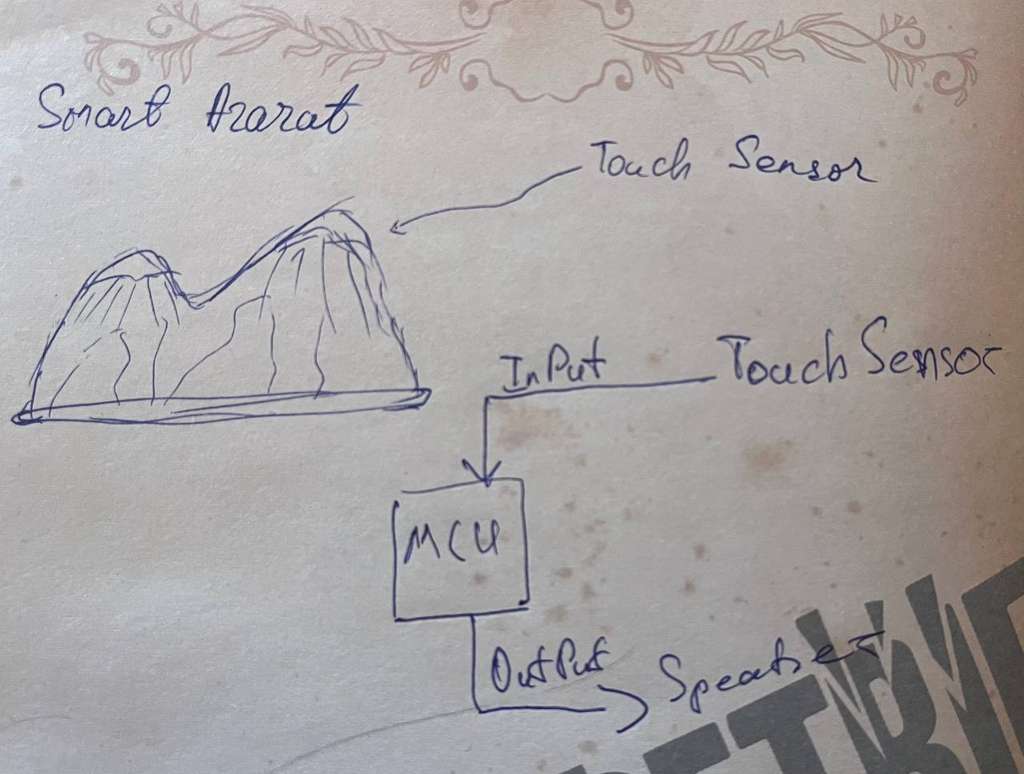 Smart Ararat
Touch Sensor
InPut
Touch Sensor
MCU
OutPut
Speaker